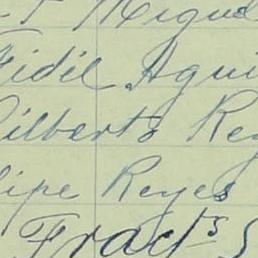 Miguel
Fidél Agui
Gilberto Rey
lipe Reyes
Frac^ts S